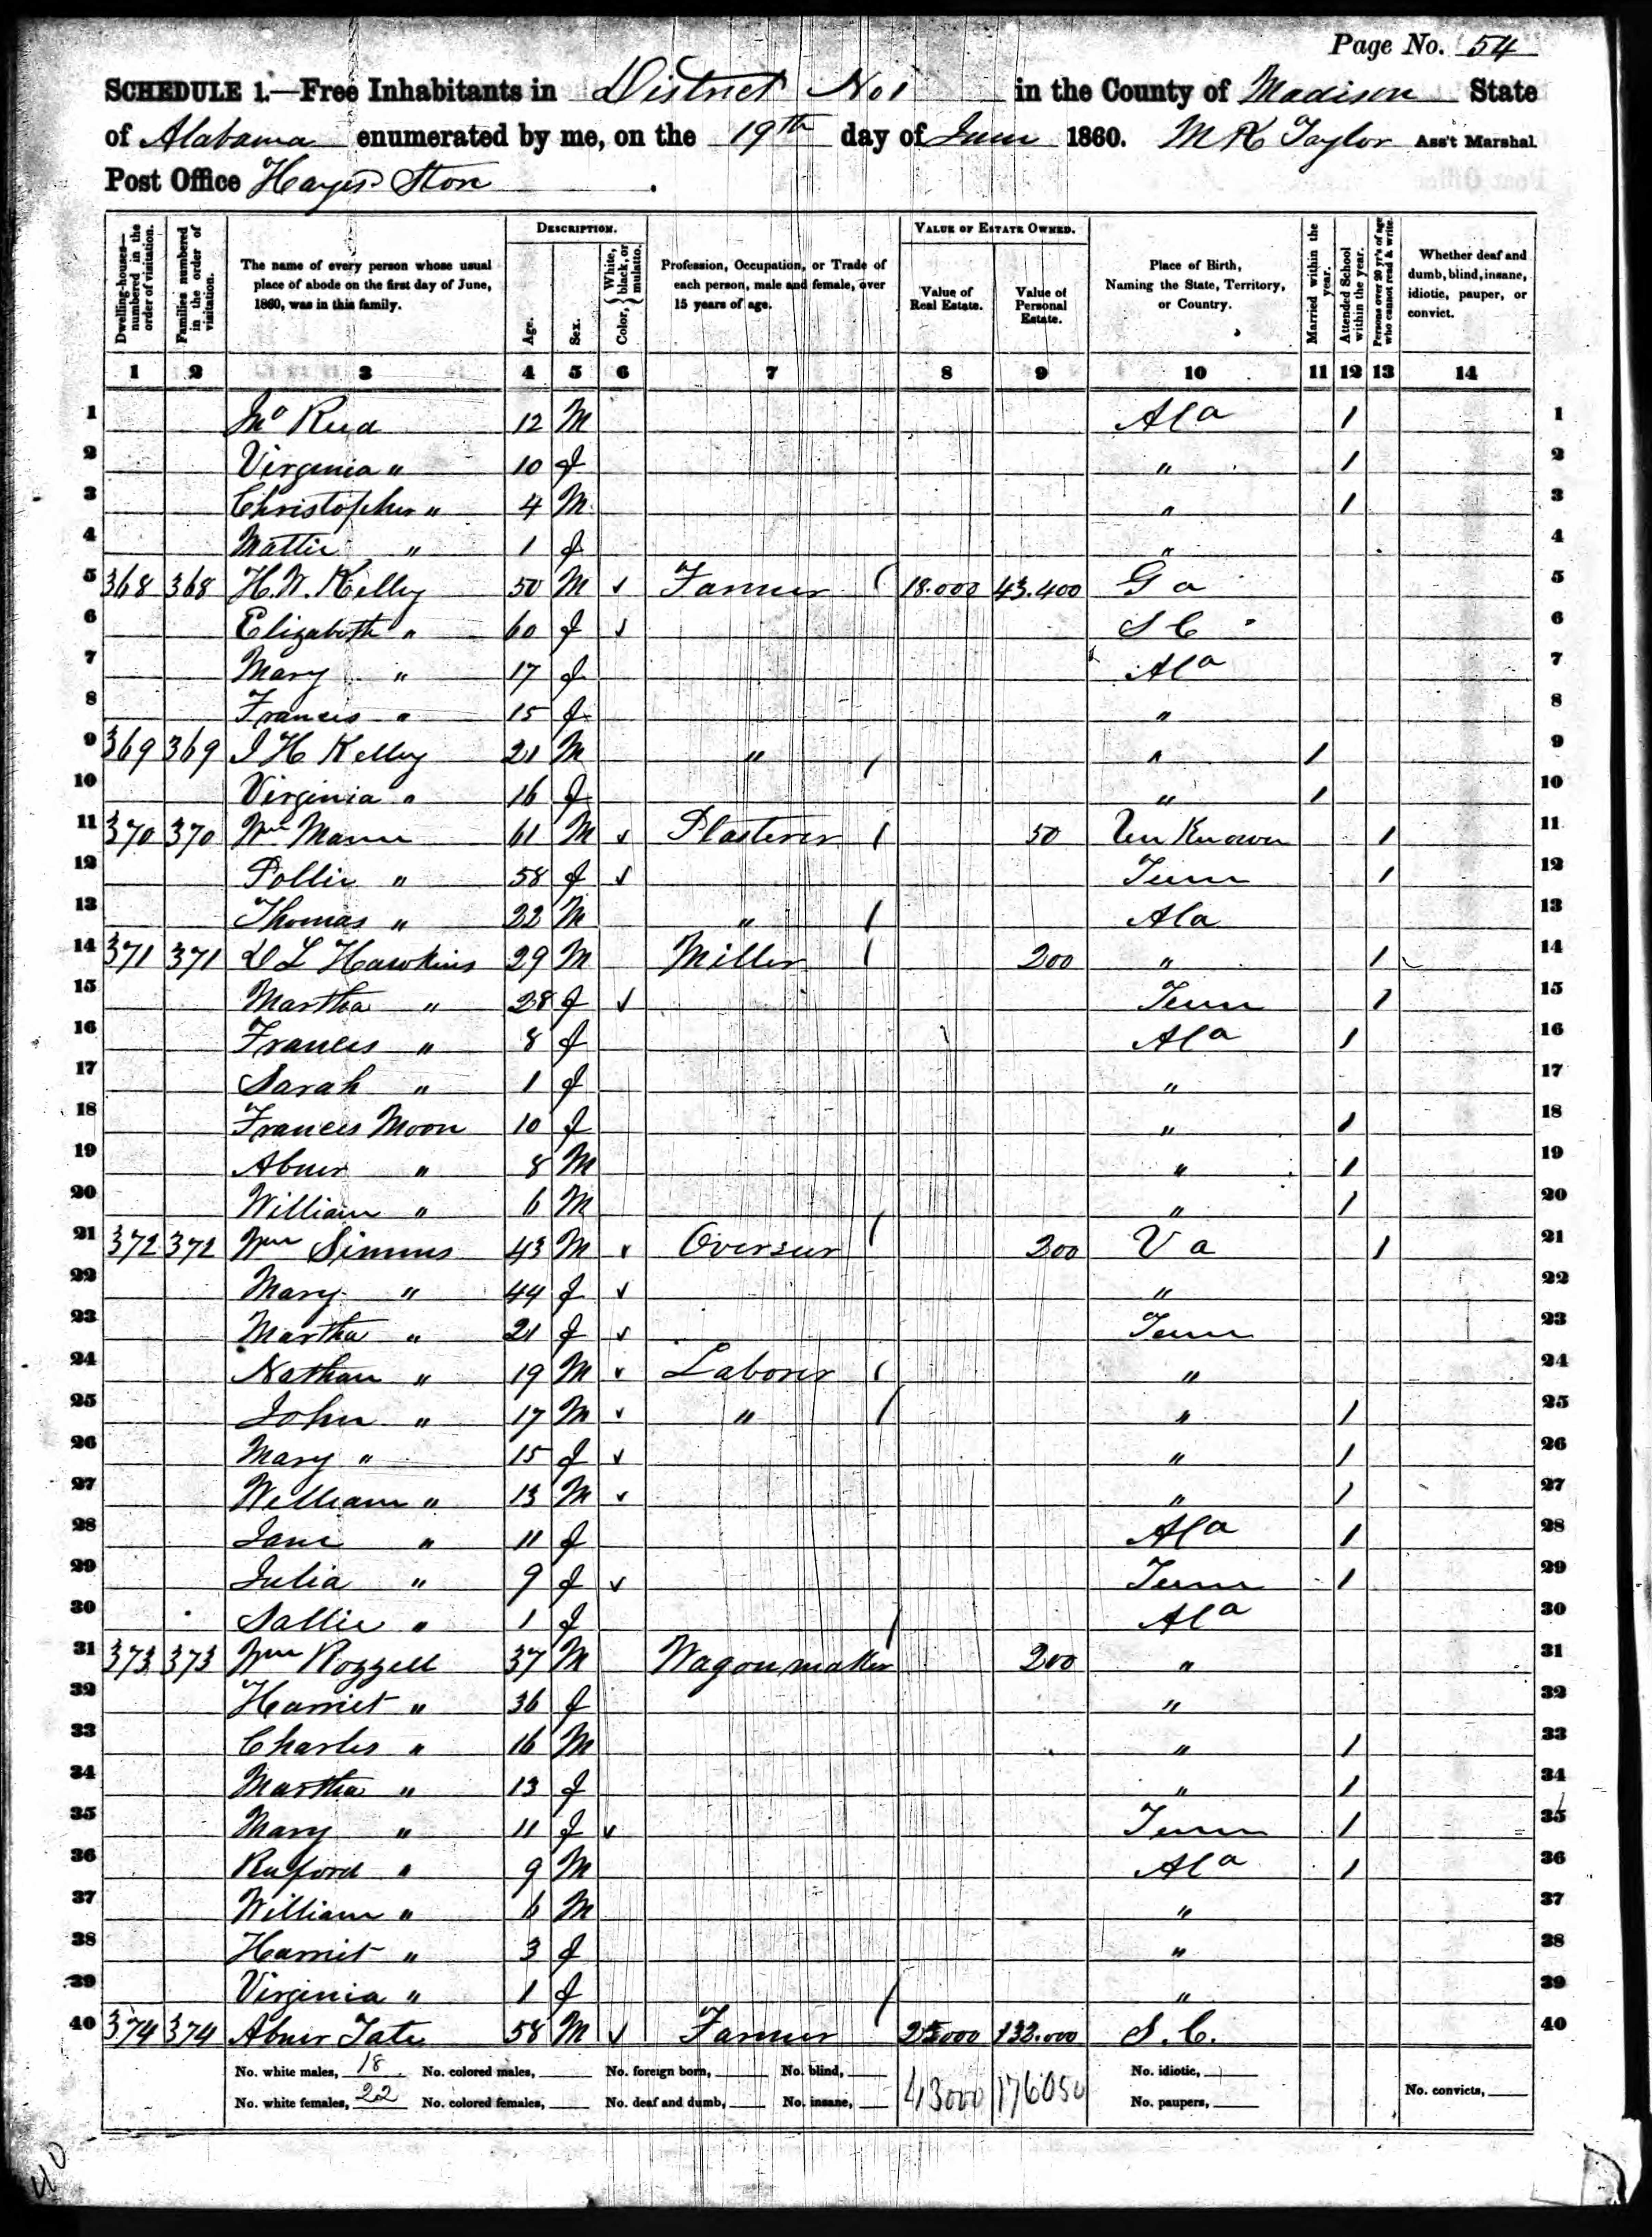 Page No. 54
SCHEDULE 1.—Free Inhabitants in District No 1 in the County of Madison State
of Alabama enumerated by me, on the 19th day of June 1860. M K Taylor Ass't Marshal.
Post Office Hayes Store.
Dwelling-houses—numbered in the order of visitation. Families numbered in the order of visitation. The name of every person whose usual place of abode on the first day of June, 1860, was in this family. DESCRIPTION. Age. Sex. Color, { White, black, or mulatto. Profession, Occupation, or Trade of each person, male and female, over 15 years of age. VALUE OF ESTATE OWNED. Value of Real Estate. Value of Personal Estate. Place of Birth, Naming the State, Territory, or Country. Married within the year. Attended School within the year. Persons over 20 yr's of age who cannot read & write. Whether deaf and dumb, blind, insane, idiotic, pauper, or convict.
1 2 3 4 5 6 7 8 9 10 11 12 13 14
1 Jno Reed 12 M Ala / 1
2 Virginia " 10 f " / 2
3 Christopher " 4 M " / 3
4 Mattie " 1 f " 4
5 368 368 H. W. Kelley 50 M ✓ Farmer 18.000 43.400 Ga 5
6 Elizabeth " 60 f ✓ S C 6
7 Mary " 17 f Ala 7
8 Frances " 15 f " 8
9 369 369 J H Kelley 21 M " " / 9
10 Virginia " 16 f " / 10
11 370 370 Wm Mann 61 M ✓ Plasterer 50 Un Known / 11
12 Pollie " 58 f ✓ Tenn / 12
13 Thomas " 22 M " Ala 13
14 371 371 D L Hawkins 29 M Miller 200 " / 14
15 Martha " 28 f ✓ Tenn / 15
16 Frances " 8 f Ala / 16
17 Sarah " 1 f " 17
18 Frances Moon 10 f " / 18
19 Abner " 8 M " / 19
20 William " 6 M " / 20
21 372 372 Wm Simms 43 M ✓ Overseer 200 Va / 21
22 Mary " 44 f ✓ " 22
23 Martha " 21 f ✓ Tenn 23
24 Nathan " 19 M ✓ Laborer " 24
25 John " 17 M ✓ " " / 25
26 Mary " 15 f ✓ " / 26
27 William " 13 M ✓ " / 27
28 Jane " 11 f Ala / 28
29 Julia " 9 f ✓ Tenn / 29
30 Sallie " 1 f Ala 30
31 373 373 Wm Rozzell 37 M Wagon maker 200 " 31
32 Harriet " 36 f " 32
33 Charles " 16 M " / 33
34 Martha " 13 f " / 34
35 Mary " 11 f ✓ Tenn / 35
36 Ruford " 9 M Ala / 36
37 William " 6 M " 37
38 Harriet " 3 f " 38
39 Virginia " 1 f " 39
40 374 374 Abner Tate 58 M ✓ Farmer 25000 132.000 S. C. 40
No. white males, 18 No. colored males, No. foreign born, No. blind, 43000 176050 No. idiotic,
No. white females, 22 No. colored females, No. deaf and dumb, No. insane, No. paupers, No. convicts,